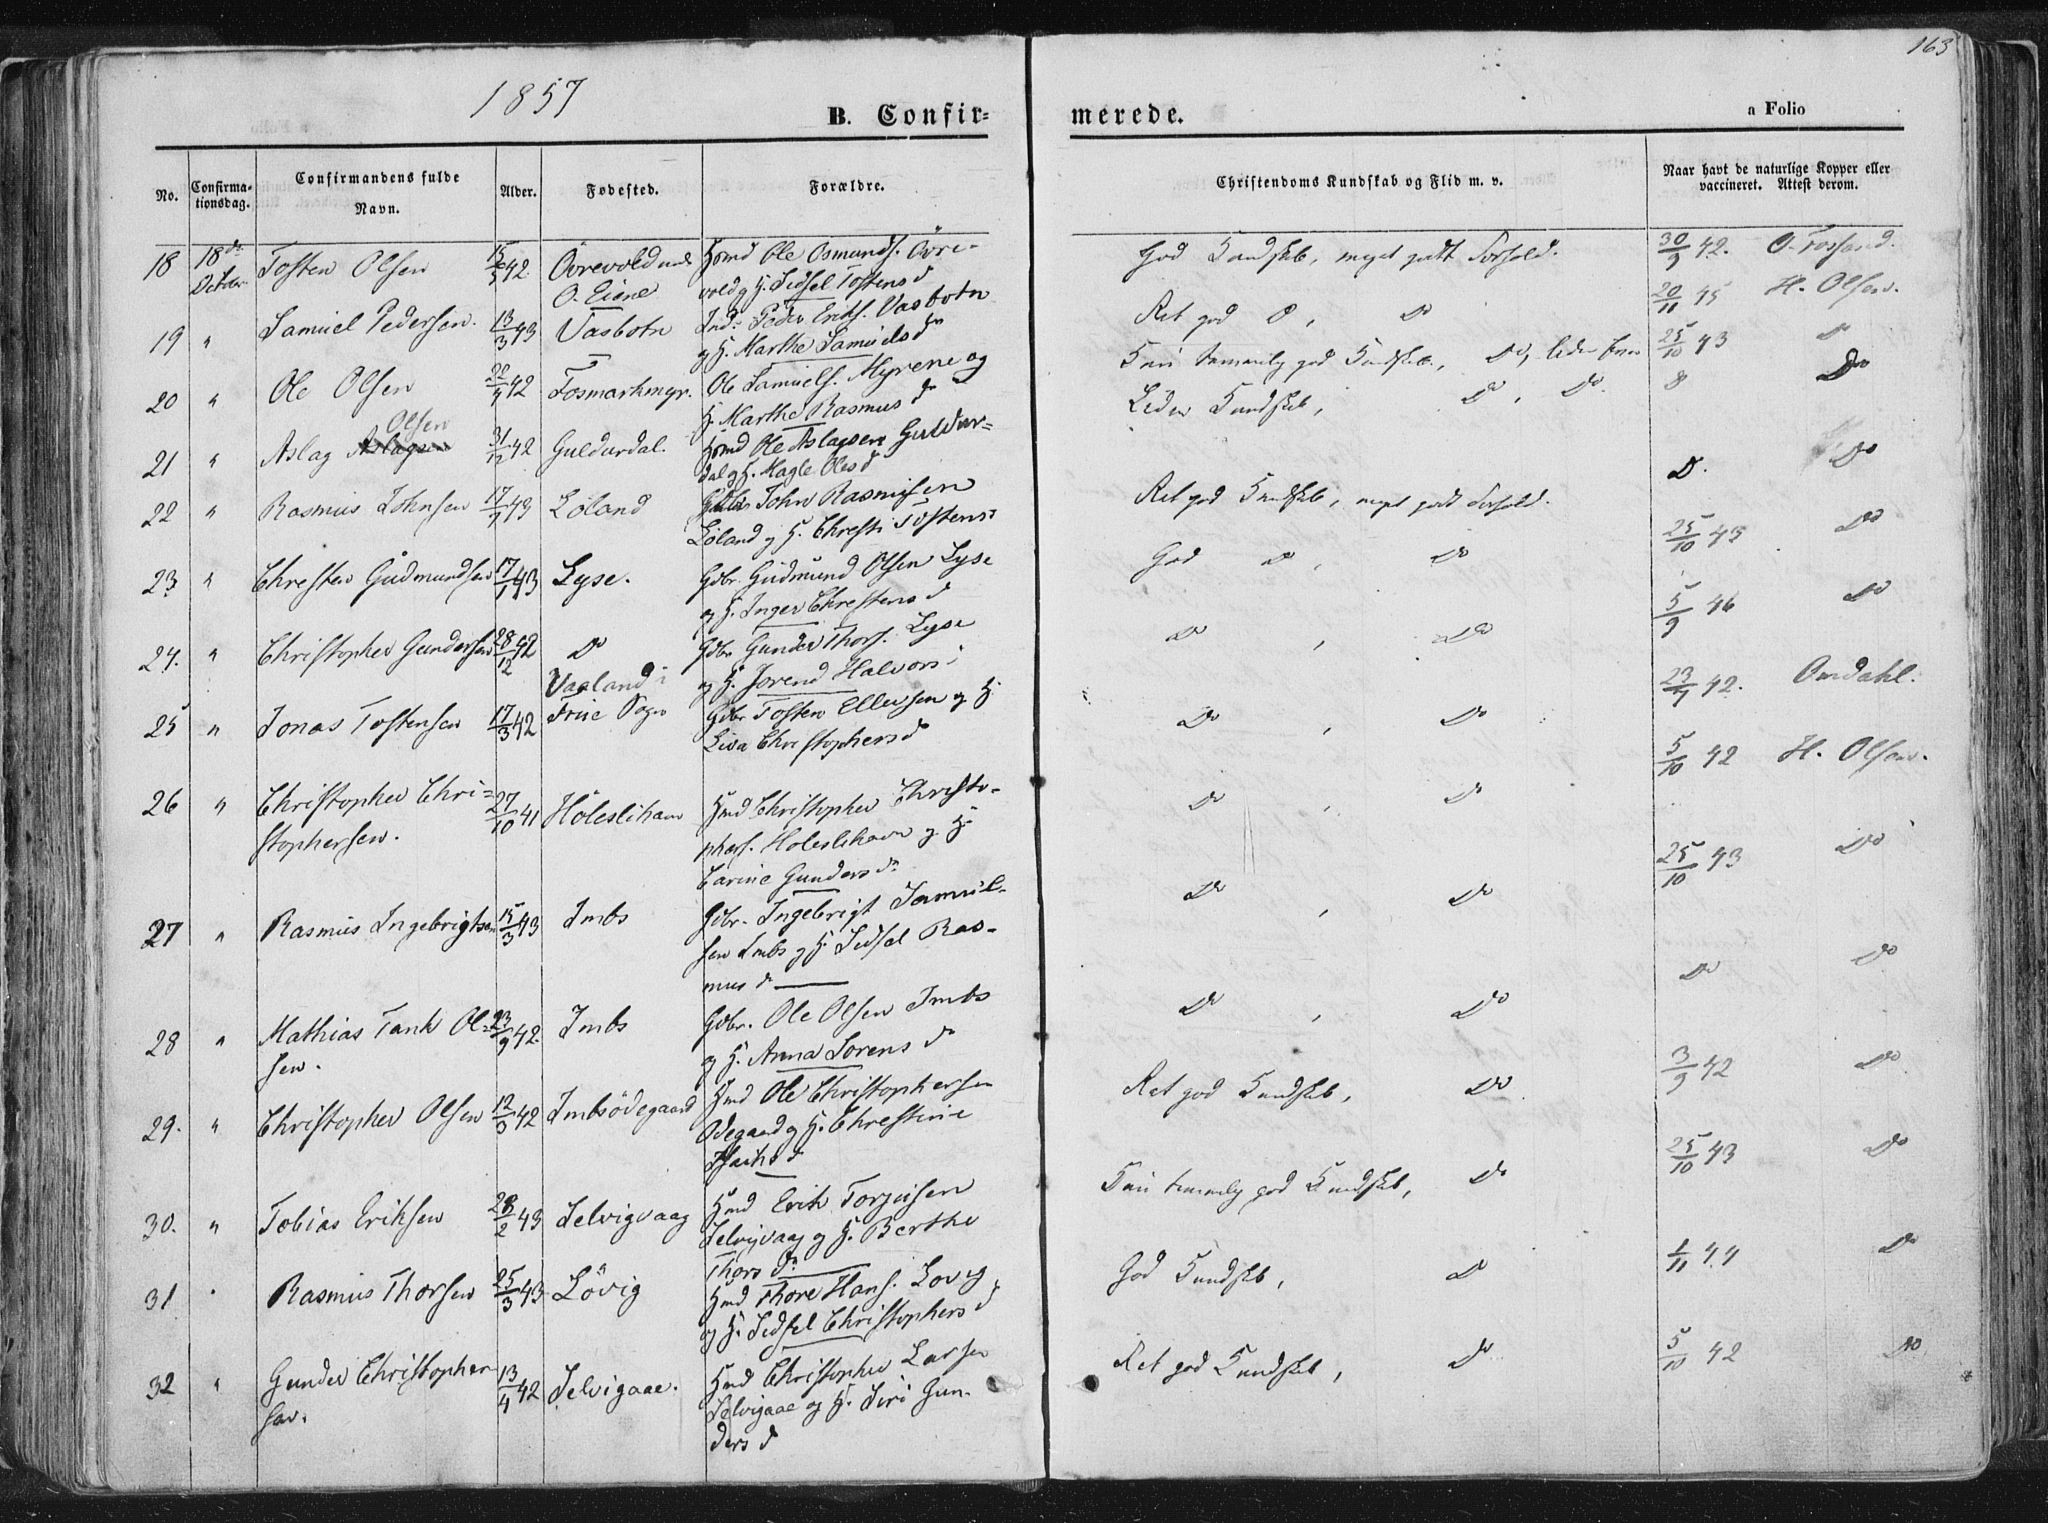 163
1857
B. Confir-
merede.
a Folio
No.
Confirma-
tionsdag.
Confirmandens fulde
Navn.
Alder.
Fødested.
Forældre.
Christendoms Kundskab og Flid m. v.
Naar havt de naturlige Kopper eller
vaccineret. Attest derom.
18 18de October Tosten Olsen 15/5 42 Övrevold
O. Eiene
Hsmd Ole Osmunds. Övre-
vold og H. Sidsel Tostensd
God Kundskb, meget godt Forhold. 30/9 42. O. Fossand.
19 " Samuel Pedersen. 13/3 43 Vasbotn
Ind: Peder Eriks. Vasbotn
og H. Marthe Samuelsd
Ret god Do, Do 20/11 45 H. Olsen.
20 " Ole Olsen 42 Fosmarkmyr.
Ole Samuels. Myrene og
H. Marthe Rasmusd
Kun temmelig god Kundskb, Do, 25/10 43 Do
21 " Aslag Aslagsen Olsen 31/12 42 Guldurdal.
Hsmd Ole Aslagsen Guldur-
dal og H. Magle Olesd
Liden Kundskb, Do, Do. Do
22 " Rasmus Johnsen 17/7 43 Löland
Gdbr John Rasmusen
Löland og H. Chresti Tostens:
Ret god Kundskb, meget godt Forhold. D. Do
23 " Chresten Gudmundsen 17/1 43 Lyse.
Gdbr. Gudmund Olsen Lyse
og H. Inger Chrestensd
God Do, Do 25/10 43 Do
24. " Christopher Gundersen 28/12 42 Do
Gdbr Gunder Thors. Lyse
og H. Jorend Halvors:
Do, Do 5/9 46 Do
25 " Jonas Tostensen 17/3 42 Vaaland i
Frue Sogn
Gdbr Tosten Ellevsen og H
Lisa Christophersd
Do, Do 23/9 42. Omdahl.
26 " Christopher Chri-
stophersen. 27/10 41 Höleslihavn
Hmd Christopher Christo-
phers. Holeslihavn og H.
Carine Gundersdr
Do, Do 5/10 42 H. Olsen.
27 " Rasmus Ingebrigtsen 15/3 43 Imbs
Gdbr. Ingebrigt Samuel-
sen Imbs og H. Sidsel Ras-
musd
Do, Do 25/10 43 Do
28 " Mathias Tank Ol-
sen. 23/9 42. Imbs
Gdbr. Ole Olsen Imbs
og H. Anna Sorensd
Do, Do Do Do
29. " Christopher Olsen 12/3 42 Imbsödegaard
Hmd Ole Christophersen
Odegaard og H. Christine
Isaksd
Ret god Kundskb, Do 3/9 42 Do
30. " Tobias Eriksen 28/2 43 Selvigvaag
Hmd Erik Torjusen
Selvigvaag og H. Berthe
Thorsdr
Kun temmelig god Kundskb, Do 25/10 43 Do
31 " Rasmus Thorsen 25/3 43 Lövig
Hmd Thore Hans. Lovig
og H. Sidsel Christophersd
God Kundskb, Do 1/11 44 Do
32 " Gunder Christopher-
sen. 13/4 42 Selvigaae.
Hmd Christopher Larsen
Selvigaae og H. Siri Gun-
dersd
Ret god Kundskb, Do 5/10 42 Do